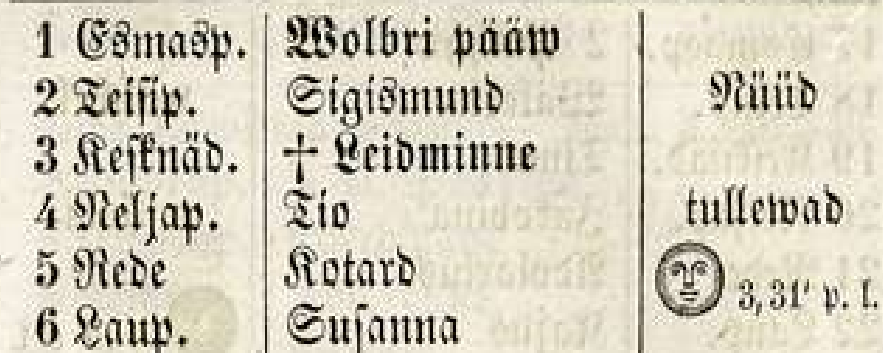 1 Esmasp. Wolbri pääw
2 Teisip. Sigismund Nüüd
3 Kesknäd. † Leidminne
4 Neljap. Tio tullewad
5 Rede Kotard 3,31' p. l.
6 Laup. Susanna